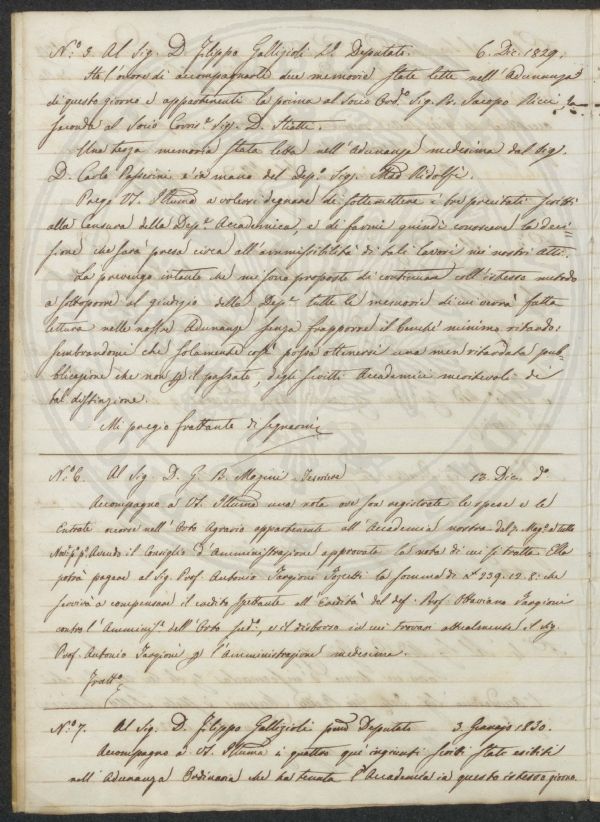 N.o Al Sig. D. Filippo Gallizioli Deputato. 6. Dic. 1829.
Ho l'onore di accompagnarle due memorie state lette nell'Adunanza
di questo giorno e appartenenti la prima al Socio Ord.o Sig. Jacopo Ricci, la
seconda al Socio Corris.e Sig. D.
Una terza memoria stata letta nell'Adunanza medesima dal Sig.
D. Carlo Passerini è in mano del Dep.o Sig. Ridolfi.
Prego VS. Illuma a volersi degnare di sottomettere i tre precitati scritti
alla Censura della Dep.e Accademica, e di farmi quindi conoscere la Deci=
sione che sarà presa circa all'ammissibilità di tali lavori nei nostri Atti.
La prevengo intanto che mi sono proposto di continuare coll'istesso metodo
a sottoporre al giudizio della Dep.e tutte le memorie di cui verrà fatta
lettura nelle nostre Adunanze senza frapporre il benchè minimo ritardo:
sembrandomi che solamente così possa ottenersi una men ritardata pub=
blicazione che non il passato, degli scritti Accademici meritevoli di
tal distinzione.
Mi pregio frattanto di segnarmi
N.o 6. Al Sig. D. G. B. Tesoriere 13. Dic. d.o
Accompagno a VS. Illuma una nota ove son registrate le spese e le
Entrate occorse nell'Orto Agrario appartenente all'Accademia nostra dal Mag.o a tutto
Nov.e Avendo il Consiglio d'Amministrazione approvata la nota di cui si tratta. Ella
potrà pagare al Sig. Prof. Antonio Targioni Tozzetti la somma di 239. 12. 8. che
servirà a compensare il credito spettante all'Eredità del def. Prof. Ottaviano Targioni
contro l'Amminis.e dell'Orto sud.o, e il disborso in cui trovasi attualmente il Sig.
Prof. Antonio Targioni l'Amministrazione medesima.
Fratt.o
N.o 7. Al Sig. D. Filippo Gallizioli Deputato 3. Gennajo 1830.
Accompagno a VS. Illuma i quattro qui ingiunti scritti stati esibiti
nell'Adunanza Ordinaria che ha tenuta l'Accademia in questo istesso giorno.